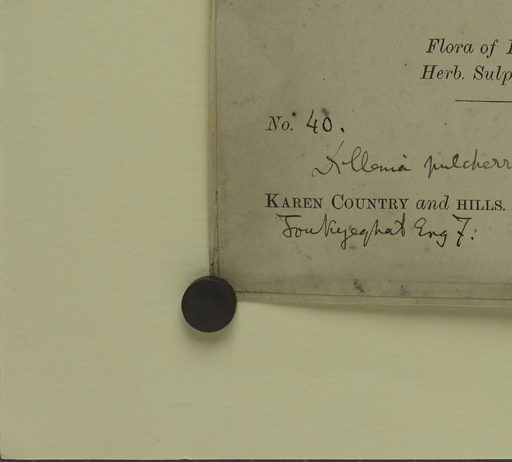 Flora of
Herb. Sulp
No. 40.
Dillenia pulcherr
KAREN COUNTRY and HILLS.
Toukyeghat Eng F.